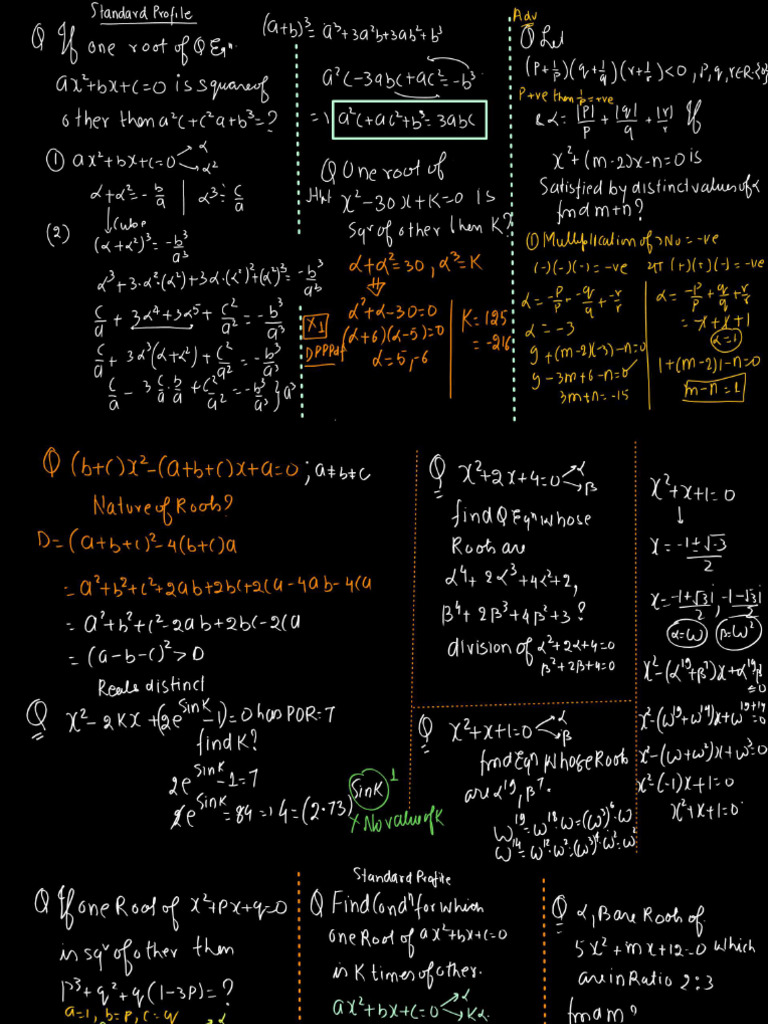 Standard Profile
Q If one root of Q Eqn.
ax²+bx+c=0 is square of
other then a²c+c²a+b³=?
① ax²+bx+c=0 < α
α²
α+α²=-b/a | α³=c/a
↓Cube
(2) (α+α²)³=-b³/a³
α³+3·α²(α²)+3α·(α²)²+(α²)³=-b³/a³
c/a+3α⁴+3α⁵+c²/a²=-b³/a³
c/a+3α³(α+α²)+c²/a²=-b³/a³
c/a-3c/a·b/a+c²/a²=-b³/a³}a³
(a+b)³=a³+3a²b+3ab²+b³
a²c-3abc+ac²=-b³
⇒ a²c+ac²+b³=3abc
Q One root of
x²-30x+K=0 is
Sqr of other then K?
α+α²=30, α³=K
⇓
α²+α-30=0
(α+6)(α-5)=0
α=5,-6
K=125
=-216
X1
DPPPdf
Adv
Q Let
(p+1/p)(q+1/q)(r+1/r)<0, p,q,r∈R-{0}
P+ve then 1/p=+ve
& α=|p|/p+|q|/q+|r|/r If
x²+(m-2)x-n=0 is
Satisfied by distinct values of α
find m+n?
① Multiplication of 3 No=-ve
(-)(-)(-)=-ve या (+)(+)(-)=-ve
α=-p/p+-q/q+-r/r
α=-3
9+(m-2)(-3)-n=0
9-3m+6-n=0
3m+n=-15
α=-p/p+q/q+r/r
=-1+1+1
α=1
1+(m-2)1-n=0
m-n=1
Q (b+c)x²-(a+b+c)x+a=0; a≠b≠c
Nature of Roots?
D=(a+b+c)²-4(b+c)a
=a²+b²+c²+2ab+2bc+2ca-4ab-4ca
=a²+b²+c²-2ab+2bc-2ca
=(a-b-c)²>0
Real & distinct
Q x²-2Kx+(2e^sinK-1)=0 has POR=7
find K?
2e^sinK-1=7
2e^sinK=84⇒4=(2.73)^sinK
1
X No value of K
Q x²+2x+4=0 < α
β
find Q Eqn whose
Roots are
α⁴+2α³+4α²+2,
β⁴+2β³+4β²+3?
division of α²+2α+4=0
β²+2β+4=0
Q x²+x+1=0 < α
β
find Eqn whose Roots
are α¹⁹, β⁷.
ω¹⁹=ω¹⁸·ω=(ω³)⁶·ω
ω¹⁴=ω¹²·ω²=(ω³)⁴·ω²=ω²
x²+x+1=0
↓
x=-1±√-3/2
x=-1+√3i/2, -1-√3i/2
α=ω β=ω²
x²-(α¹⁹+β⁷)x+α¹⁹β⁷=0
x²-(ω¹⁹+ω¹⁴)x+ω¹⁹⁺¹⁴=0
x²-(ω+ω²)x+ω³=0
x²-(-1)x+1=0
x²+x+1=0
Q If one Root of x²+px+q=0
is sqr of other then
p³+q²+q(1-3p)=?
a=1, b=p, c=q
Standard Profile
Q Find Condn for which
one Root of ax²+bx+c=0
is K times of other.
ax²+bx+c=0 < α
Kα
Q α,β are Roots of
5x²+mx+12=0 which
are in Ratio 2:3
find m?